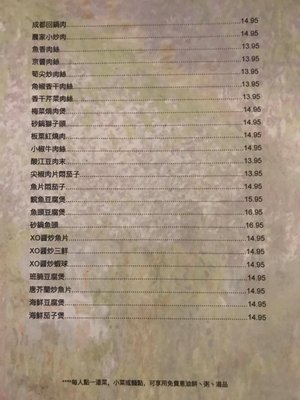 成都回鍋肉 14.95
農家小炒肉 14.95
魚香肉絲 13.95
京醬肉絲 13.95
筍尖炒肉絲 14.95
魚椒香干肉絲 14.95
香干芹菜肉絲 13.95
梅菜燒肉煲 14.95
砂鍋獅子頭 14.95
板栗紅燒肉 14.95
小椒牛肉絲 14.95
酸江豆肉末 13.95
尖椒肉片悶茄子 13.95
魚片悶茄子 14.95
鯇魚豆腐煲 15.95
魚頭豆腐煲 16.95
砂鍋魚頭 16.95
XO醬炒魚片 14.95
XO醬炒三鮮 14.95
XO醬炒蝦球 14.95
班腩豆腐煲 14.95
唐芥蘭炒魚片 14.95
海鮮豆腐煲 14.95
海鮮茄子煲 14.95
****每人點一道菜，小菜或麵點，可享用免費蔥油餅、粥、湯品